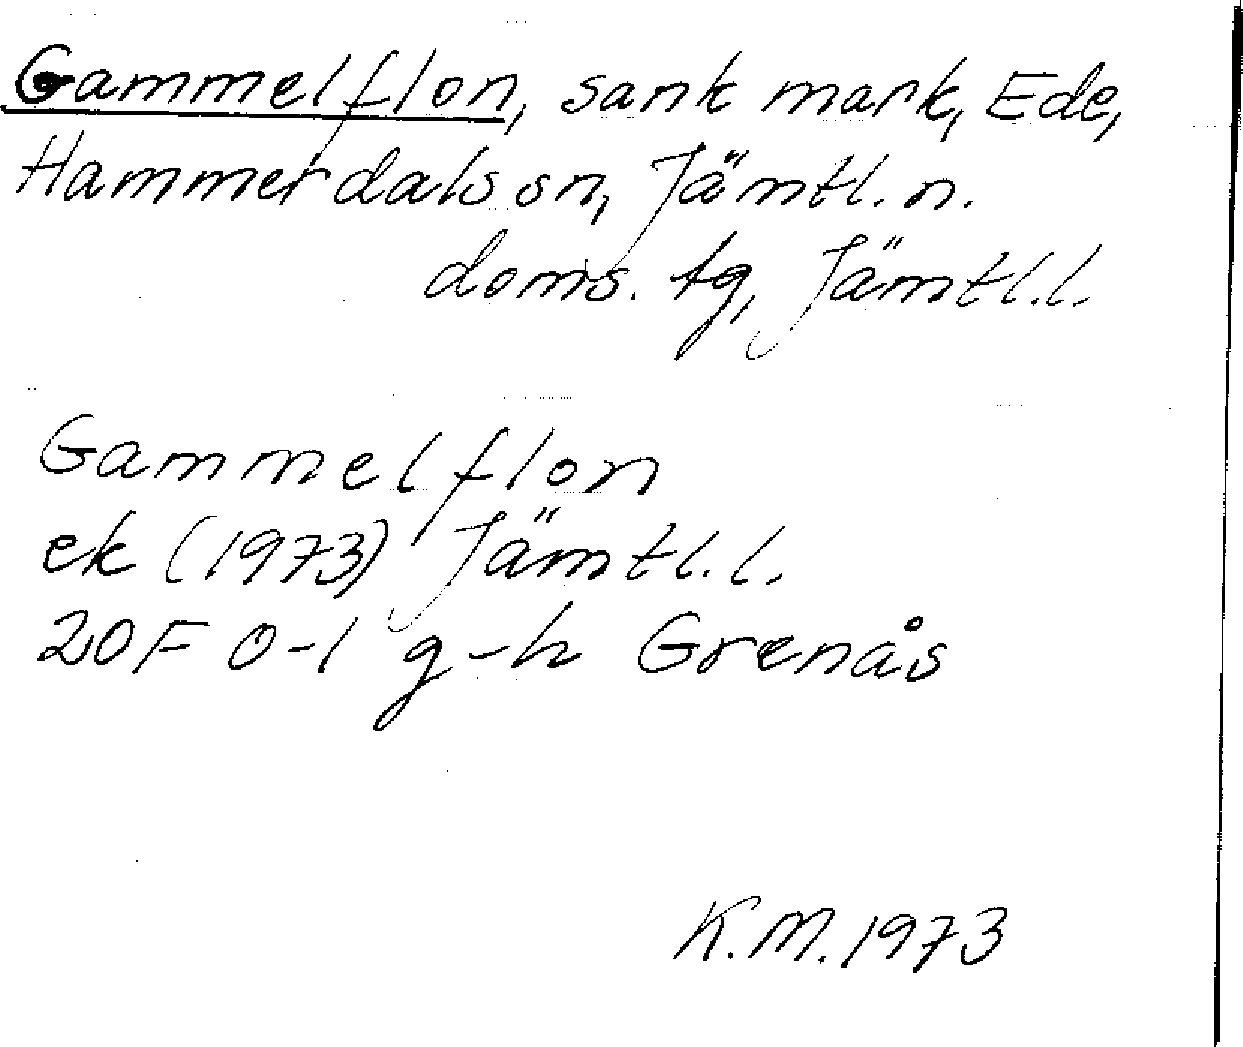 Gammelflon, sank mark, Ede,
Hammerdals sn, Jämtl. n.
doms. tg, Jämtl. l.
Gammelflon
ek (1973) Jämtl. l.
20F 0-1 g-h Grenås
K.M. 1973